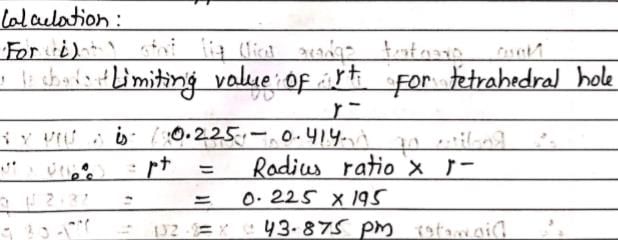 Calculation :
For i)
Limiting value of r+ / r- for tetrahedral hole
is 0.225 - 0.414.
∴ r+ = Radius ratio x r-
= 0.225 x 195
= 43.875 pm